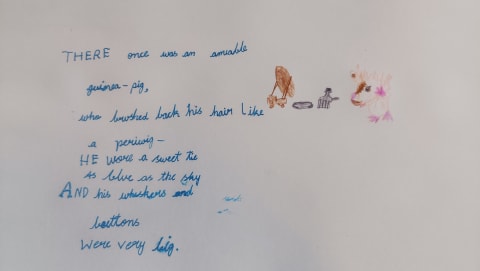 THERE once was an amiable
guinea-pig,
who brushed back his hair like
a periwig-
HE wore a sweet tie
As blue as the sky
AND his whiskers and
buttons
Were very big.